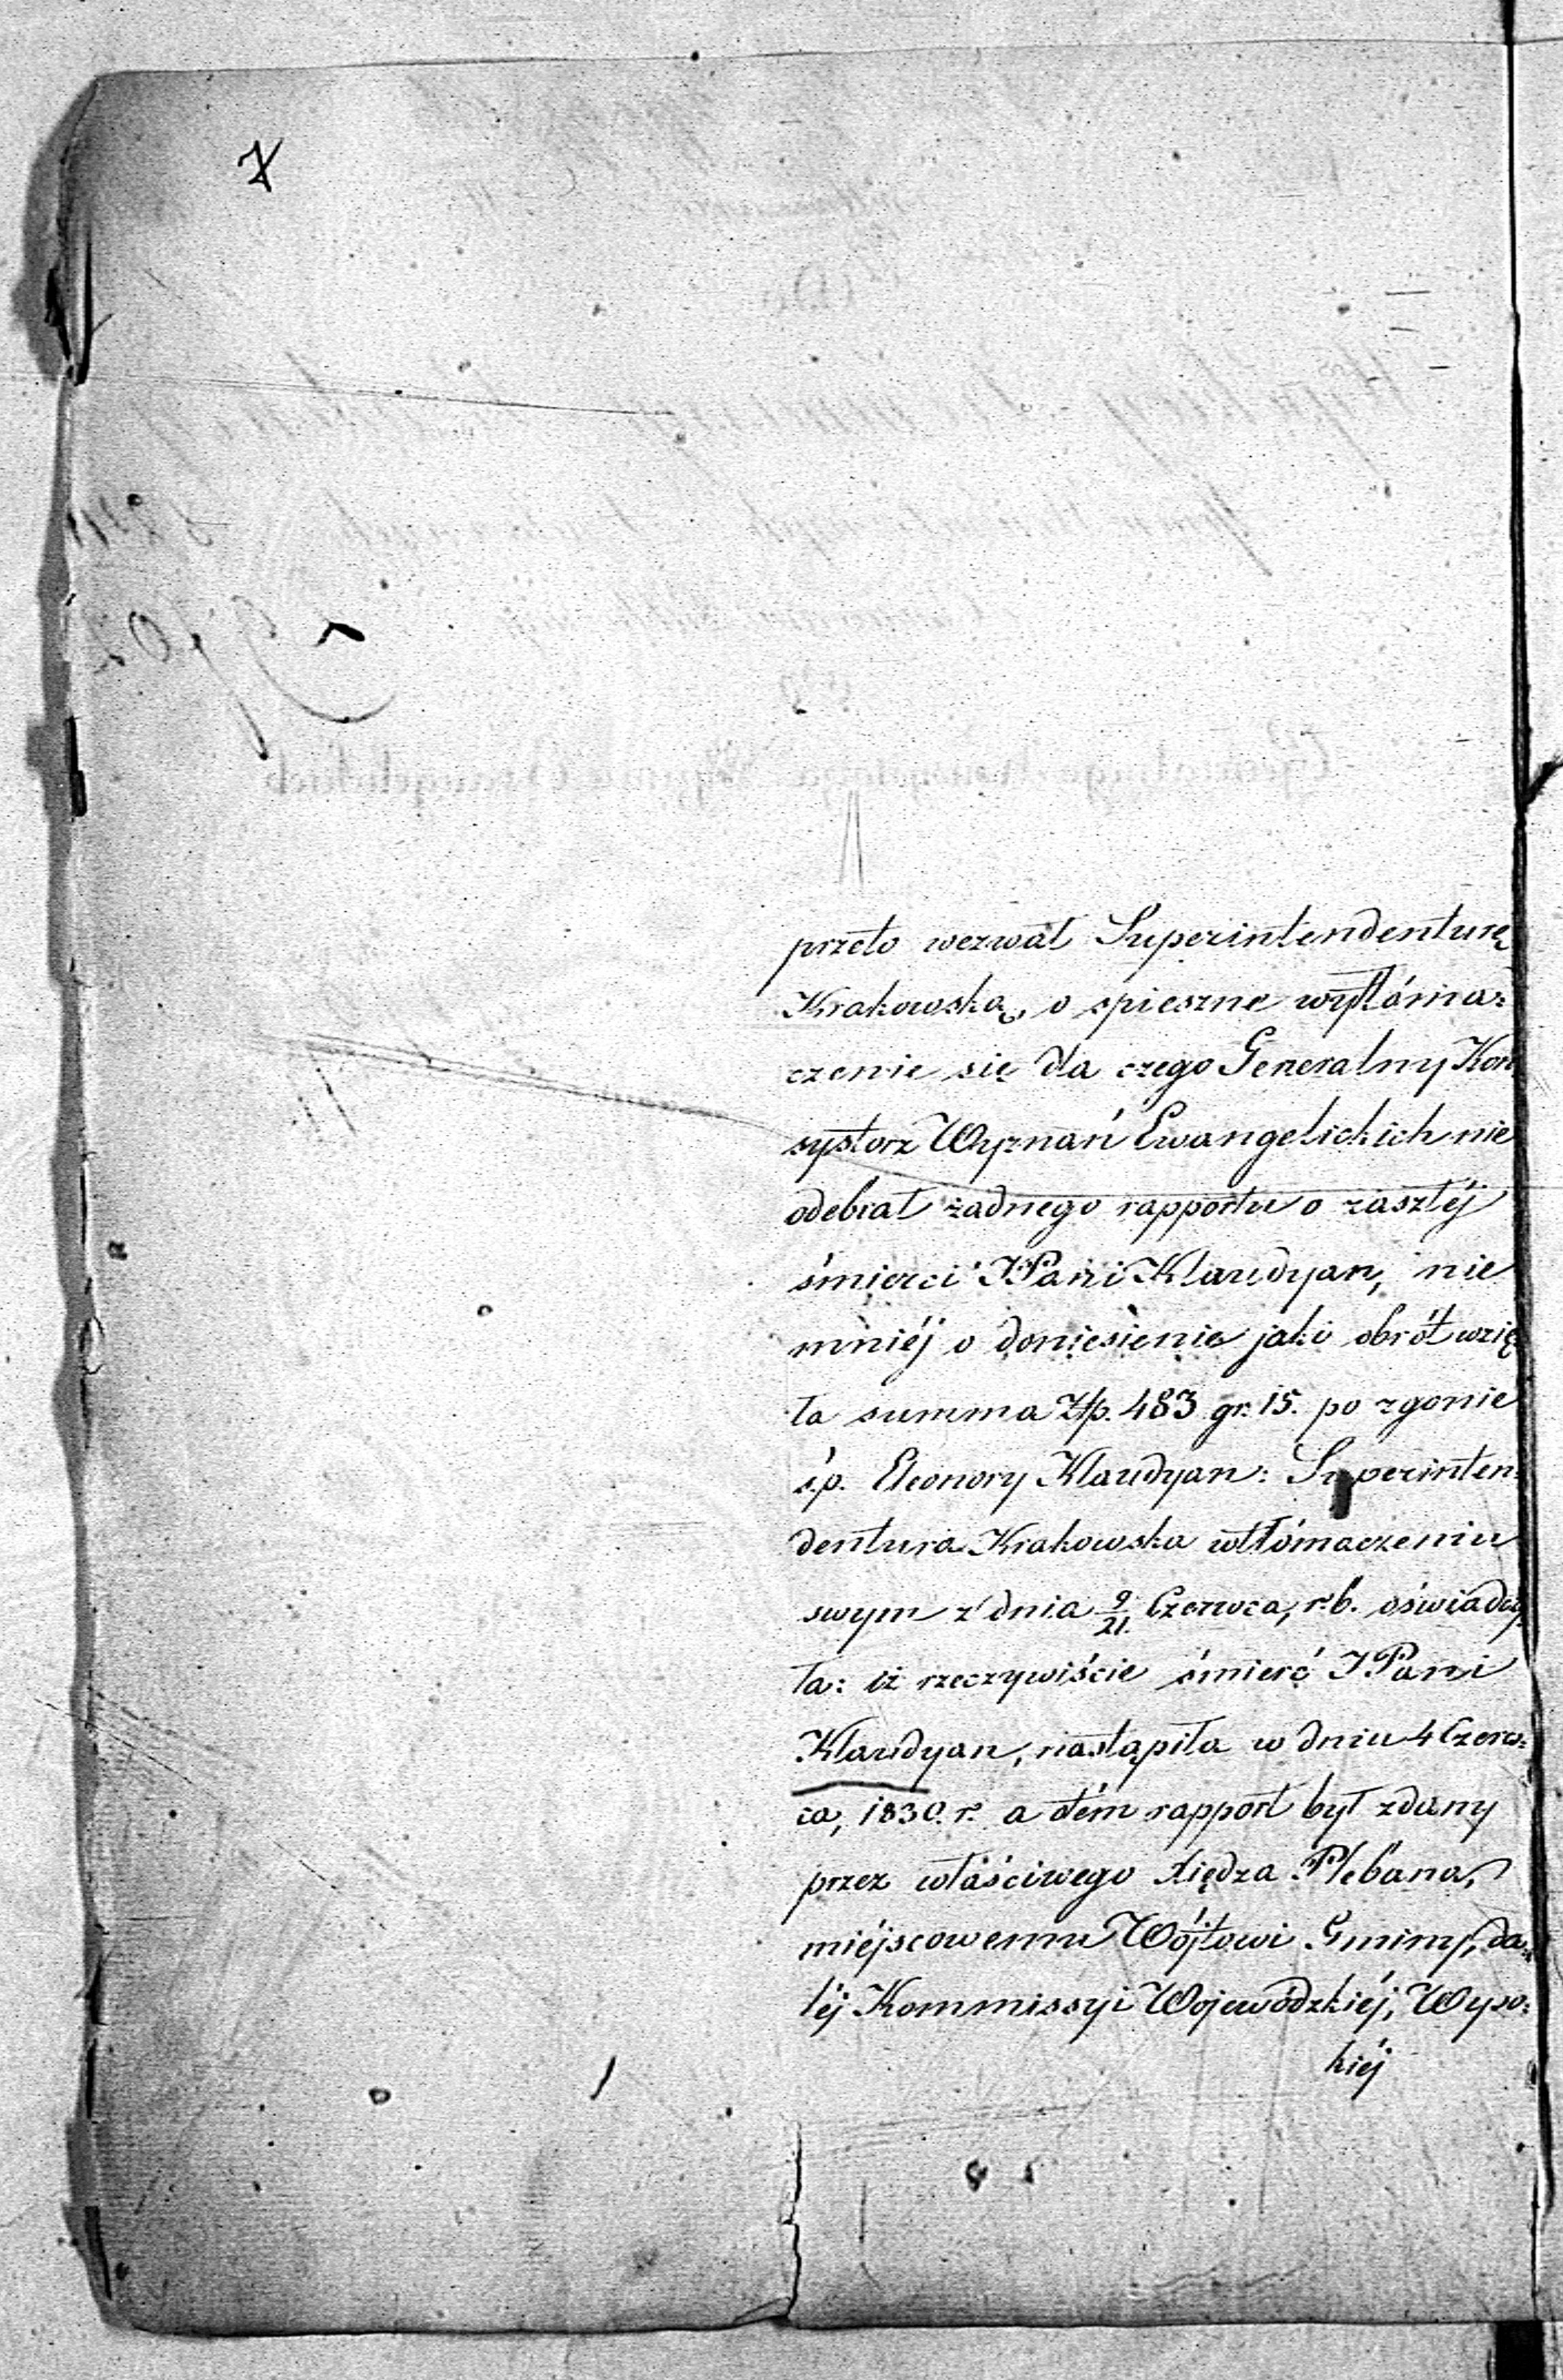 7
przeto wezwał Superintendenturę
Krakowską, o spieszne wytłóma:
czenie się dla czego Generalny Kon
systorz Wyznań Ewangelickich nie
odebrał żadnego rapportu o zaszłéj
śmierci JPani Klaudyan, nie
mniéj o doniesienie jaki obrót wzię
ła summa Złp. 483 gr. 15. po zgonie
ś.p. Eleonory Klaudyan: Superinten:
dentura Krakowska wtłómaczeniu
swym z dnia 9/21. Czerwca, r.b. oświadczy
ła: iż rzeczywiście śmierć JPani
Klaudyan, nastąpiła w dniu 4 Czerw:
ca, 1830. r. a o tém rapport był zdany
przez właściwego Xiędza Plebana,
miéjscowemu Wójtowi Gminy, da:
léj Kommissyi Wojewódzkiéj, Wyso:
kiéj